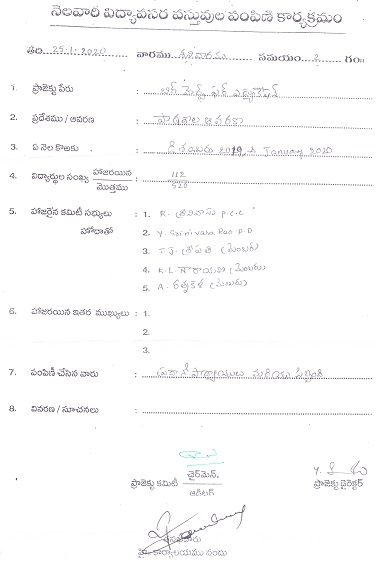 నెలవారి విద్యావసర వస్తువుల పంపిణి కార్యక్రమం
తేది 25-1-2020 వారము శనివారము సమయం గం॥
1. ప్రాజెక్టు పేరు :
2. ప్రదేశము / ఆవరణ : పాఠశాల ఆవరణ
3. ఏ నెల కొఱకు : డిశంబరు 2019 & January 2020
4. విద్యార్థుల సంఖ్య హాజరయిన / మొత్తము : 112 / 520
5. హాజరైన కమిటీ సభ్యులు : 1. R. శ్రీనివాసు P.C.C
హోదాతో 2. Y. Srinivasa Rao P.D
3. T.J. శ్రీపతి (మెంబరు)
4. K.L. నారాయణ (మెంబరు)
5. A. రత్నకళ (మెంబరు)
6. హాజరయిన ఇతర ముఖ్యులు : 1.
2.
3.
7. పంపిణీ చేసిన వారు : ప్రధానోపాధ్యాయులు మరియు సిబ్బంది
8. వివరణ / సూచనలు :
ప్రాజెక్టు కమిటీ చైర్‌మెన్. / ఆడిటర్
ప్రాజెక్టు డైరెక్టర్
కార్యాలయము నందు